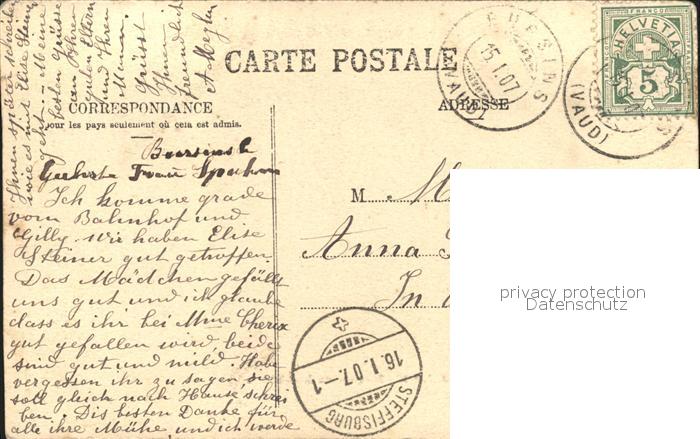 CARTE POSTALE
CORRESPONDANCE
Pour les pays seulement où cela est admis.
ADRESSE
BURSINS
15.I.07
(VAUD)
FRANCO
HELVETIA
5
S
(VAUD)
Geehrte Frau
Ich komme grade
vom Bahnhof und
Gilly. Wir haben Elise
Steiner gut getroffen.
Das Mädchen gefällt
uns gut und ich glaube
dass es ihr bei Mme
gut gefallen wird, beide
sind gut und mild. Habe
vergessen ihr zu sagen, sie
soll gleich nach Hause schrei
ben. Dis besten Danke für
alle ihre Mühe und ich werde
Ihnen später schreiben
wie es mit Elise Steiner
geht. Meine
besten Grüsse
an Ihren
guten Eltern
und Ihren
Mann.
Grüsst
Ihnen
freundlich
M
M
Anna
In
STEFFISBURG
16.I.07.-1
privacy protection
Datenschutz